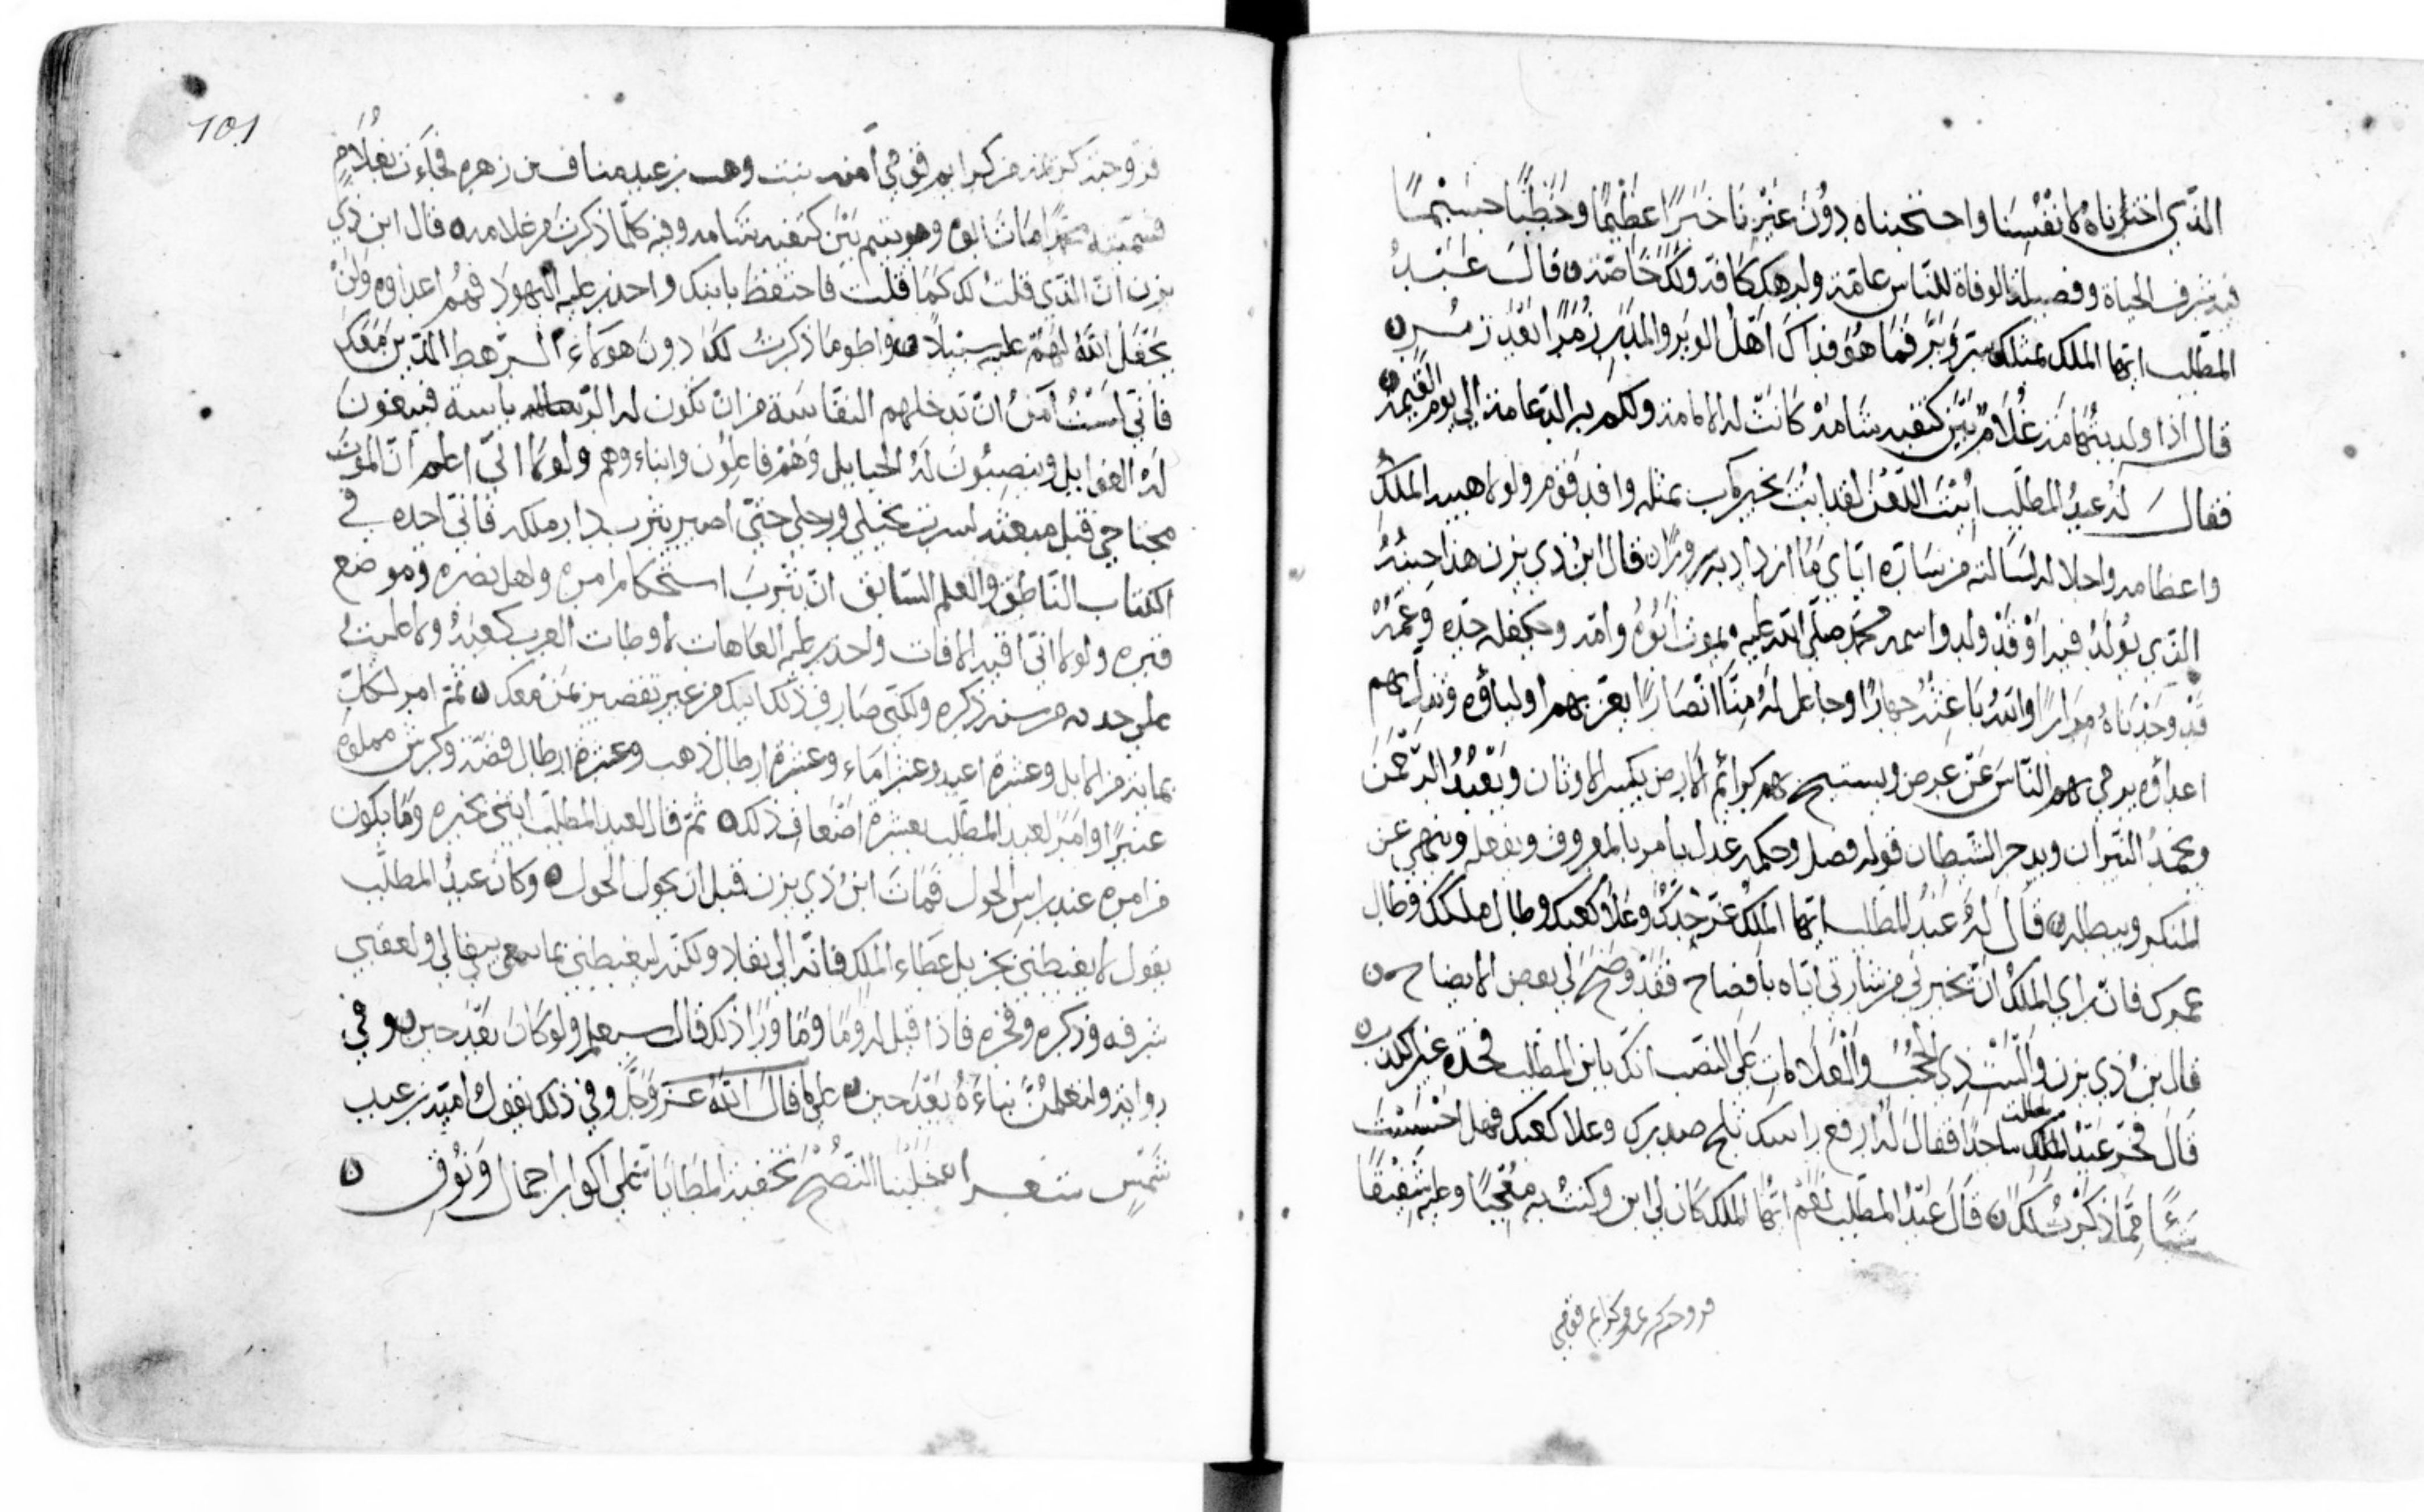 الذي اخترناه لانفسنا واحتجبناه دون غيرنا خبرا عظيما وخطبا جسيما
فيه شرف الحياة وفضيلة الوفاة للناس عامة ولرهطك كافة ولك خاصة ن قال عبد
المطلب ايها الملك مثلك سر وبر فما هو فداك اهل الوبر والمدر زمرا بعد زمر ن
قال اذا ولد بتهامة غلام بين كتفيه شامة كانت له الامامة ولكم به الدعامة الي يوم القيمة ن
فقال له عبد المطلب ابيت اللعن لقد ابت بخير ما اب بمثله وافد قوم ولولا هيبة الملك
واعظامه واجلاله لسالته من ساره اياي ما ازداد به سرورا ن قال ابن ذي يزن هذا حينه
الذي يولد فيه او قد ولد واسمه محمد صلي الله عليه يموت ابوه وامه ويكفله جده وعمه
قد وجدناه مرارا والله باعثه جهارا وجاعل له منا انصارا يعز بهم اولياؤه ويذل بهم
اعداؤه يرمي بهم الناس عن عرض ويستبيح بهم كرائم الارض يكسر الاوثان ويعبد الرحمن
ويخمد النيران ويدحر الشيطان قوله فصل وحكمه عدل يامر بالمعروف ويفعله وينهي عن
المنكر ويبطله ن قال له عبد المطلب ايها الملك عز جدك وعلا كعبك وطال ملكك وطال
عمرك فان راي الملك ان يخبرني من سارني اياه بافصاح فقد وضح لي بعض الايضاح ن
قال بن ذي يزن والبيت ذي الحجب والعلامات علي النصب انك يا بن المطلب لجده غير الكذب ن
قال فخر عبد المطلب ساجدا فقال له ارفع راسك ثلج صدرك وعلا كعبك فهل احسست
شيئا مما ذكرت لك ن قال عبد المطلب نعم ايها الملك كان لي ابن وكنت به معجبا وعليه شفيقا
فزوجته كريمة من كرايم قومي
101
فزوجته كريمة من كرايم قومي آمنه بنت وهب بن عبد مناف بن زهره فجاءت بغلام
فسميته محمدا مات ابوه وهو يتيم بين كتفيه شامه وفيه كلما ذكرت من علامه ن قال ابن ذي
يزن ان الذي قلت لك كما قلت فاحتفظ بابنك واحذر عليه اليهود فهم اعداوه ولن
يجعل الله لهم عليه سبيلا ن واطو ما ذكرت لك دون هولاء الرهط الذين معك
فاني لست آمن ان تدخلهم النفاسة من ان تكون له الرياسة فيبغون
له الغوايل وينصبون له الحبايل وهم فاعلون وابناءوهم ولولا اني اعلم ان الموت
مجتاحي قبل مبعثه لسرت بخيلي ورجلي حتي اصير يثرب دار ملكه فاني اجده في
الكتاب الناطق والعلم السابق ان يثرب استحكام امره واهل نصره وموضع
قبره ولولا اني اقيه الافات واحذر عليه العاهات لاوطات العرب كعبه ولاعليت
علي حدثه من سنه ذكره ولكني صارف ذلك اليك من غير تقصير بمن معك ن ثم امر لكل
بماية من الابل وعشرة اعبد وعشر اماء وعشرة ارطال ذهب وعشرة ارطال فضة وكرش مملوه
عنبرا وامر لعبد المطلب بعشرة اضعاف ذلك ن ثم قال لعبد المطلب ايتني بخبره وما يكون
من امره عند راس الحول فمات ابن ذي يزن قبل ان يحول الحول ن وكان عبد المطلب
يقول لا يغبطني بجزيل عطاء الملك فانه الي نفاد ولكنه ليغبطني بما يبقي لي ولعقبي
شرفه وذكره وفخره فاذا قيل له وما وما ورا ذلك قال سيعلم ولو كان بعد حين ن وفي
رواية ولتعلمن نباءه بعد حين علي ما قال الله عز وجل وفي ذلك يقول امية بن عبد
شمس شعرا جلبنا النصح تحقبه المطايا علي اكوار اجمال ونوق ن